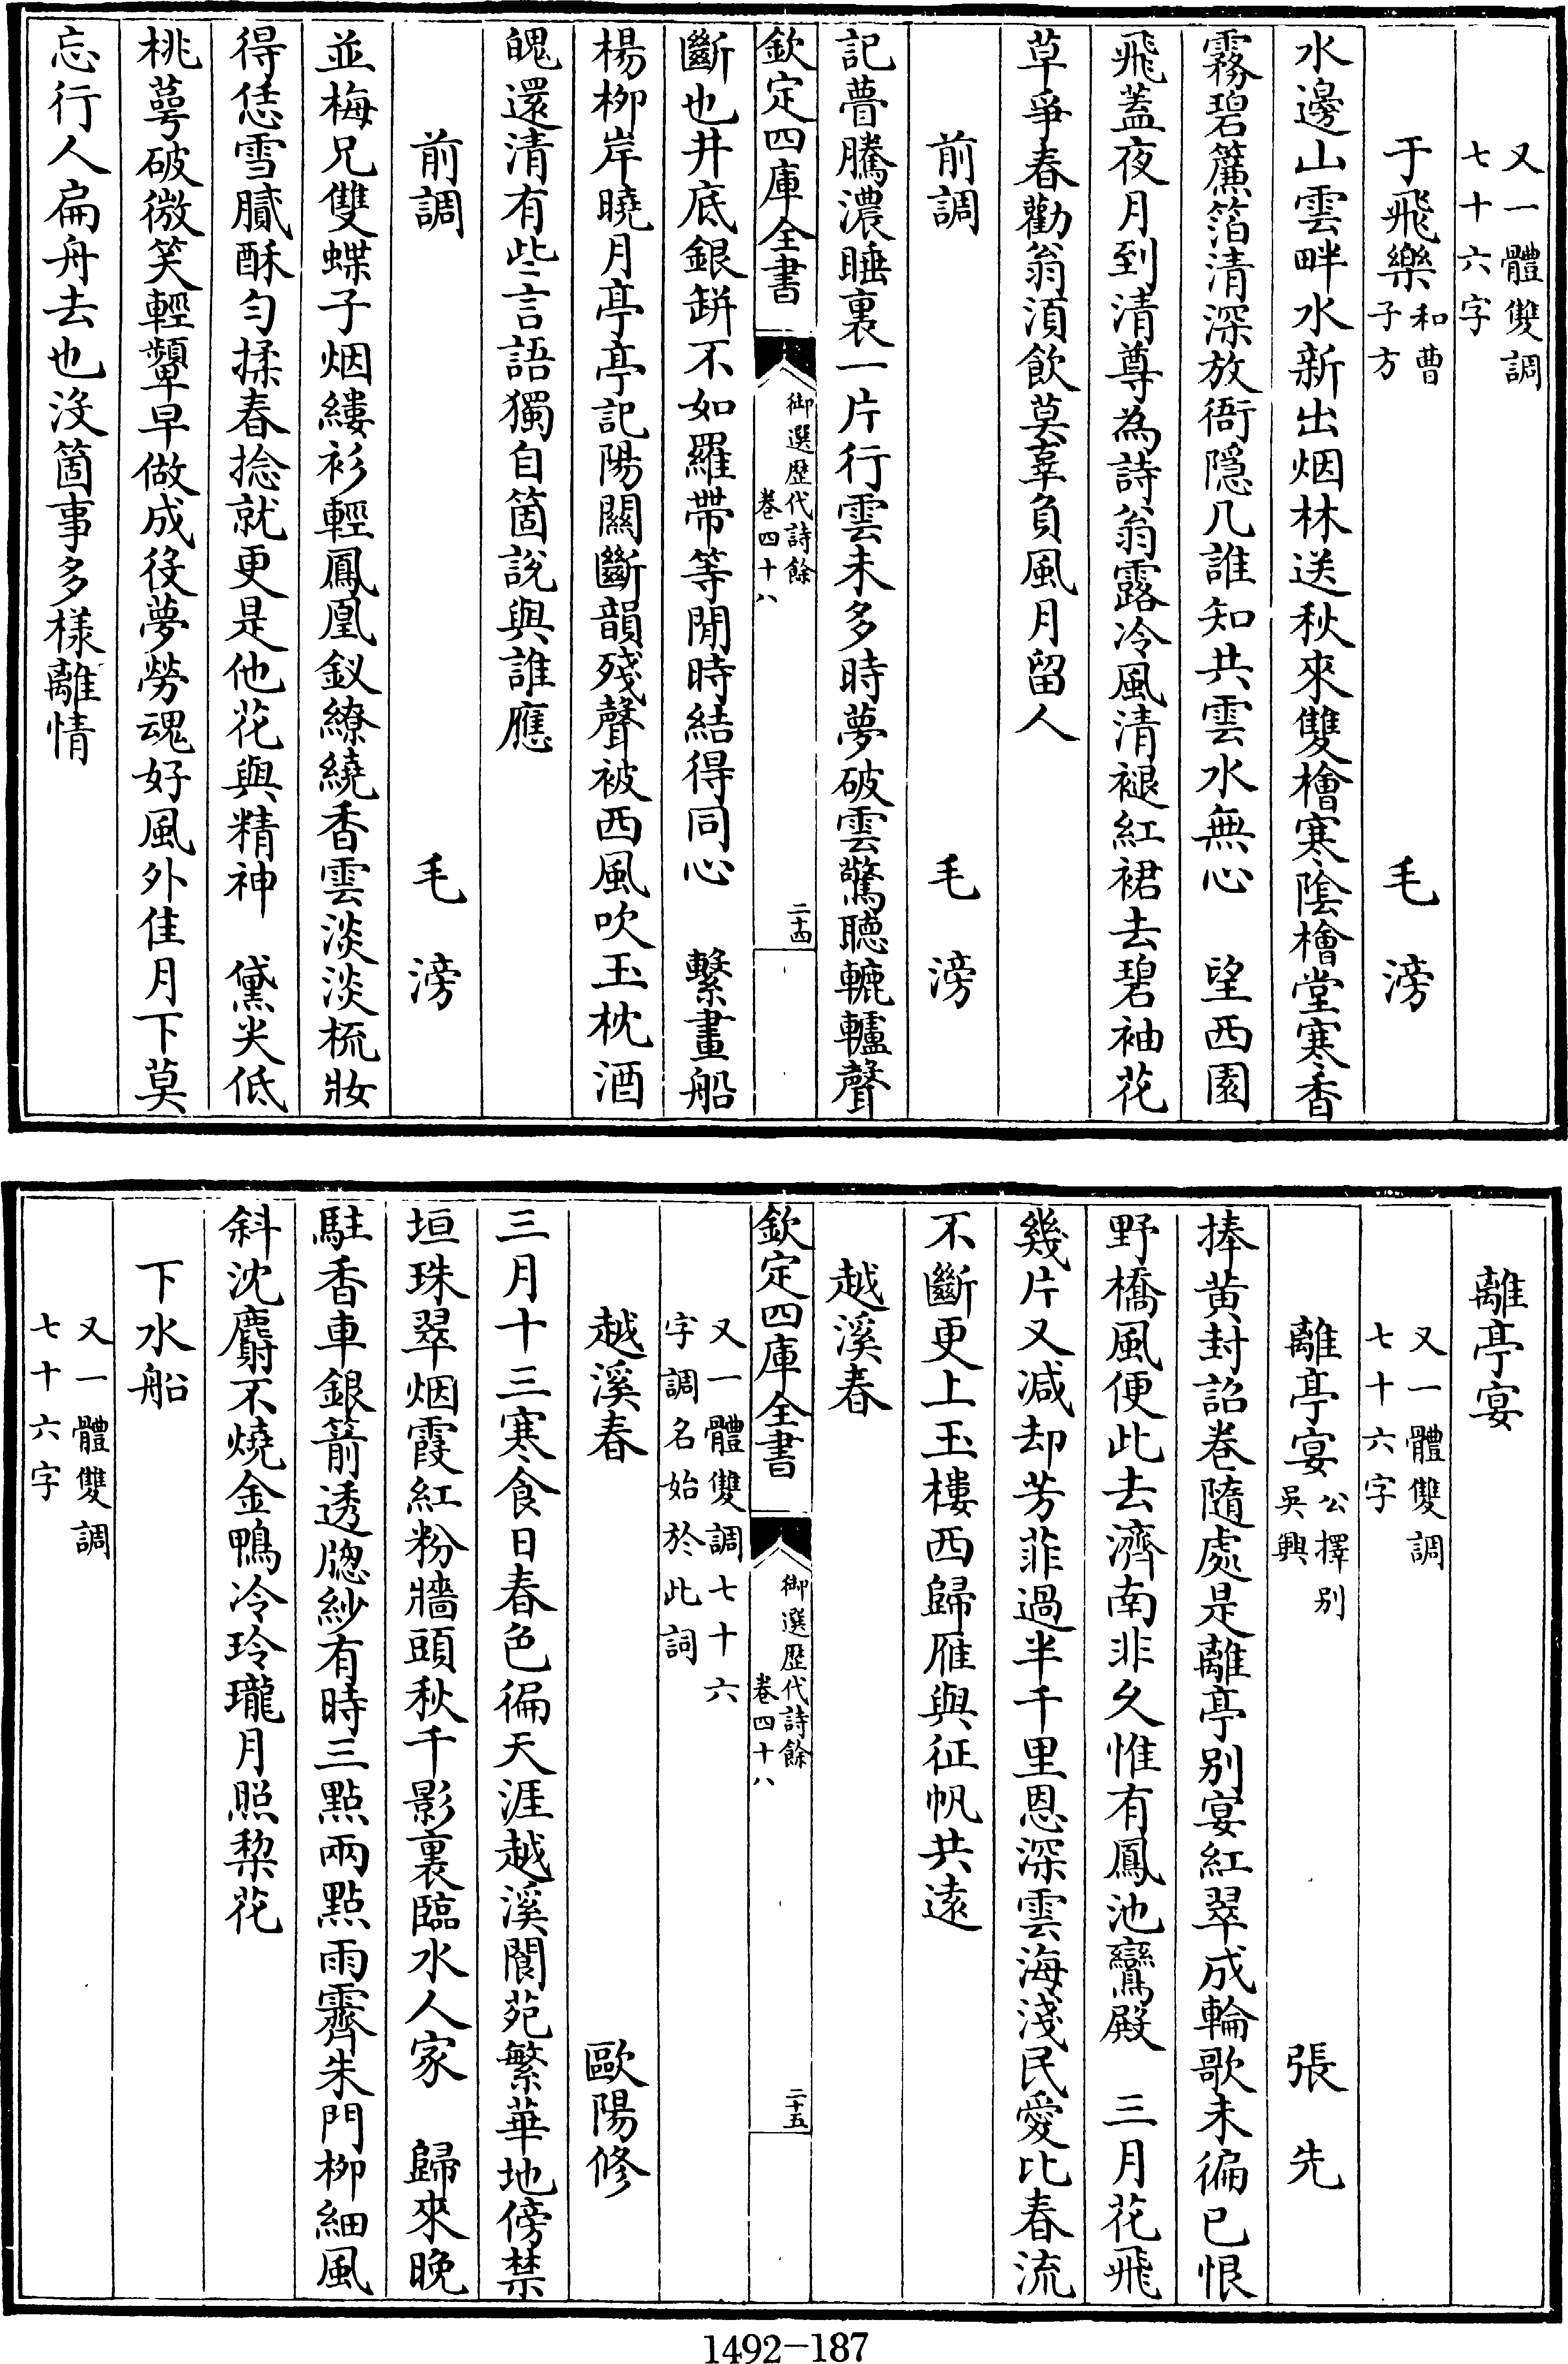 又一體雙調
七十六字
于飛樂和曹
子方 毛滂
水邊山雲畔水新出烟林送秋來雙檜寒陰檜堂寒香
霧碧簾箔清深放衙隠几誰知共雲水無心 望西園
飛蓋夜月到清尊為詩翁露冷風清褪紅裙去碧袖花
草爭春勸翁湏飲莫辜負風月留人
前調 毛滂
記瞢騰濃睡裏一片行雲未多時夢破雲驚聴轆轤聲
欽定四庫全書 御選歴代詩餘
卷四十八 二十四
斷也井底銀缾不如羅帶等閒時結得同心 繫畫船
楊柳岸曉月亭亭記陽關斷韻殘聲被西風吹玉枕酒
魄還清有些言語獨自箇說與誰應
前調 毛滂
並梅兄雙蝶子烟縷衫輕鳳凰釵繚繞香雲淡淡梳妝
得恁雪膩酥勻揉春捻就更是他花與精神 黛尖低
桃萼破微笑輕顰早做成役夢勞魂好風外佳月下莫
忘行人扁舟去也沒箇事多樣離情
離亭宴
又一體雙調
七十六字
離亭宴公擇别
吳興 張先
捧黃封詔卷隨處是離亭别宴紅翠成輪歌未徧已恨
野橋風便此去濟南非久惟有鳳池鸞殿 三月花飛
幾片又减却芳菲過半千里恩深雲海淺民愛比春流
不斷更上玉樓西歸雁與征帆共遠
越溪春
欽定四庫全書 御選歴代詩餘
卷四十八 二十五
又一體雙調七十六
字調名始於此詞
越溪春 歐陽修
三月十三寒食日春色徧天涯越溪閬苑繁華地傍禁
垣珠翠烟霞紅粉牆頭秋千影裏臨水人家 歸來晚
駐香車銀箭透牎紗有時三點兩點雨霽朱門柳細風
斜沈麝不燒金鴨冷玲瓏月照棃花
下水船
又一體雙調
七十六字
1492-187